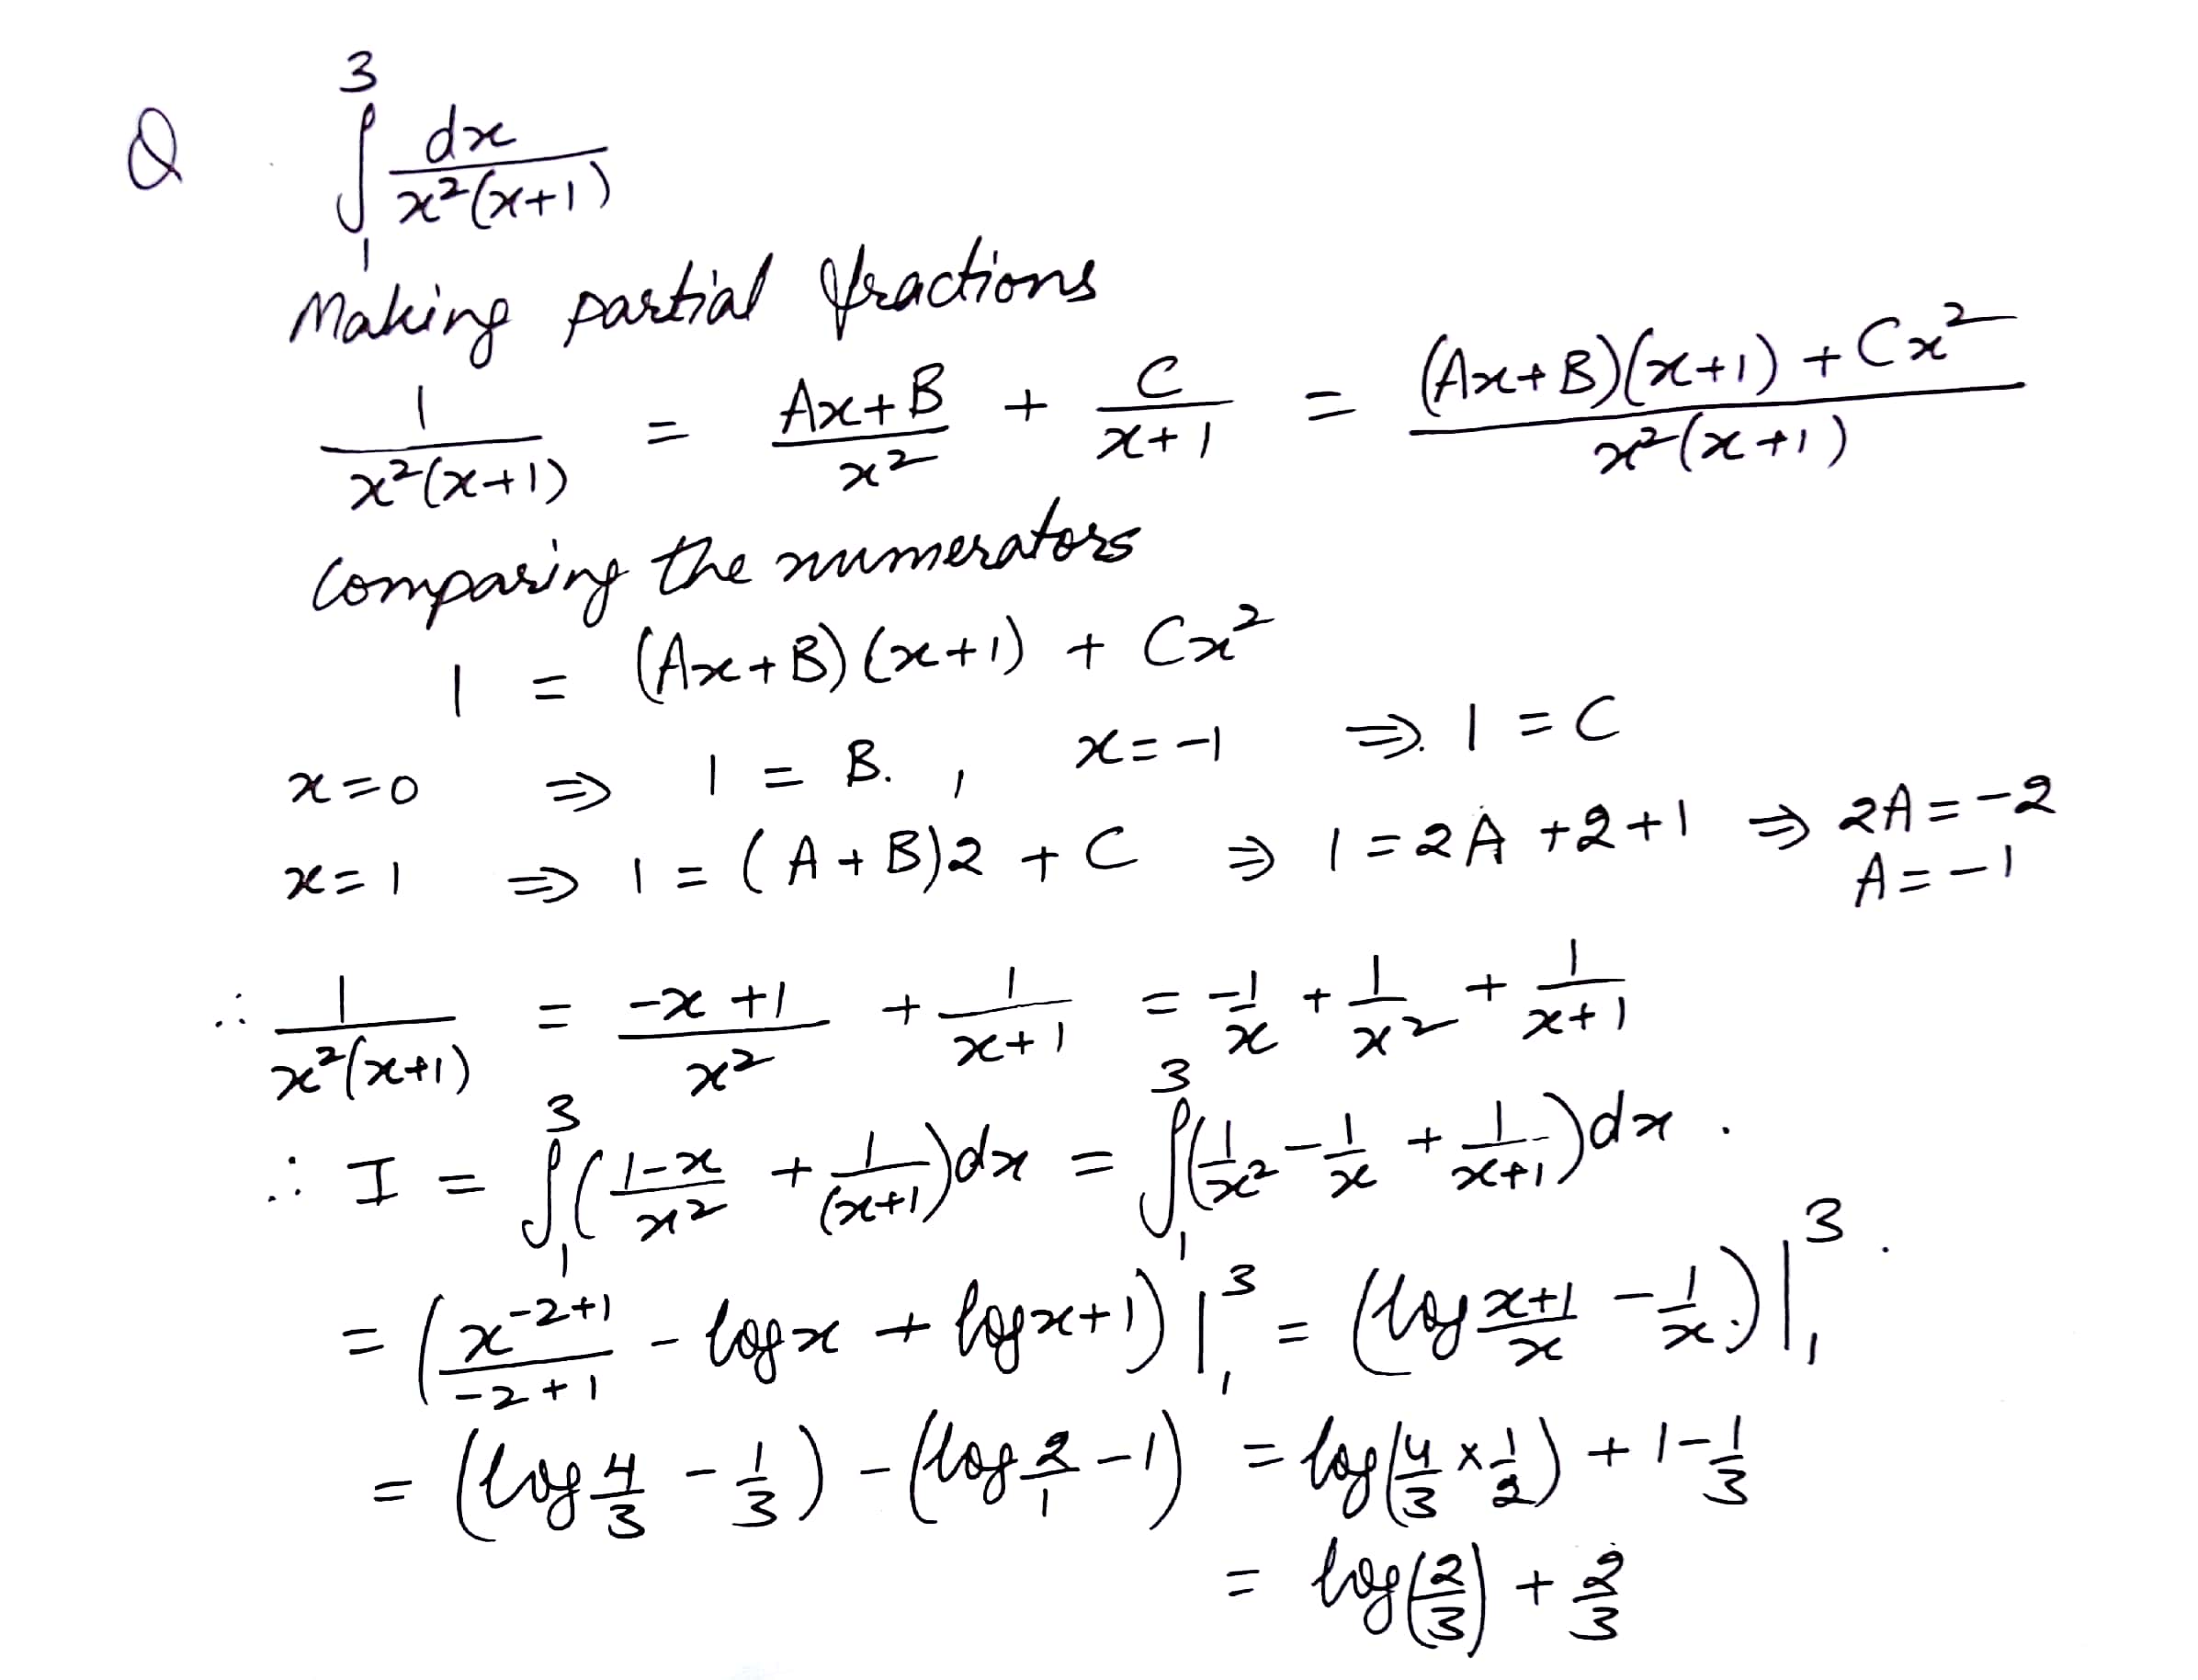 Q . ∫₁³ dx / x²(x+1)
Making partial fractions
1 / x²(x+1) = (Ax+B) / x² + C / (x+1) = ((Ax+B)(x+1) + Cx²) / x²(x+1)
Comparing the numerators
1 = (Ax+B)(x+1) + Cx²
x=0 ⇒ 1 = B. , x=-1 ⇒. 1 = C
x=1 ⇒ 1 = (A+B)2 + C ⇒ 1 = 2A +2+1 ⇒ 2A = -2
A = -1
∴ 1 / x²(x+1) = (-x+1) / x² + 1 / (x+1) = -1/x + 1/x² + 1/(x+1)
∴ I = ∫₁³ ((1-x)/x² + 1/(x+1)) dx = ∫₁³ (1/x² - 1/x + 1/(x+1)) dx .
= (x^(-2+1) / (-2+1) - log x + log x+1) |₁³ = (log (x+1)/x - 1/x.) |₁³ .
= (log 4/3 - 1/3) - (log 2/1 - 1) = log(4/3 × 1/2) + 1 - 1/3
= log(2/3) + 2/3